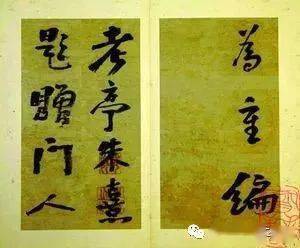 為重編
考亭朱熹
題贈門人